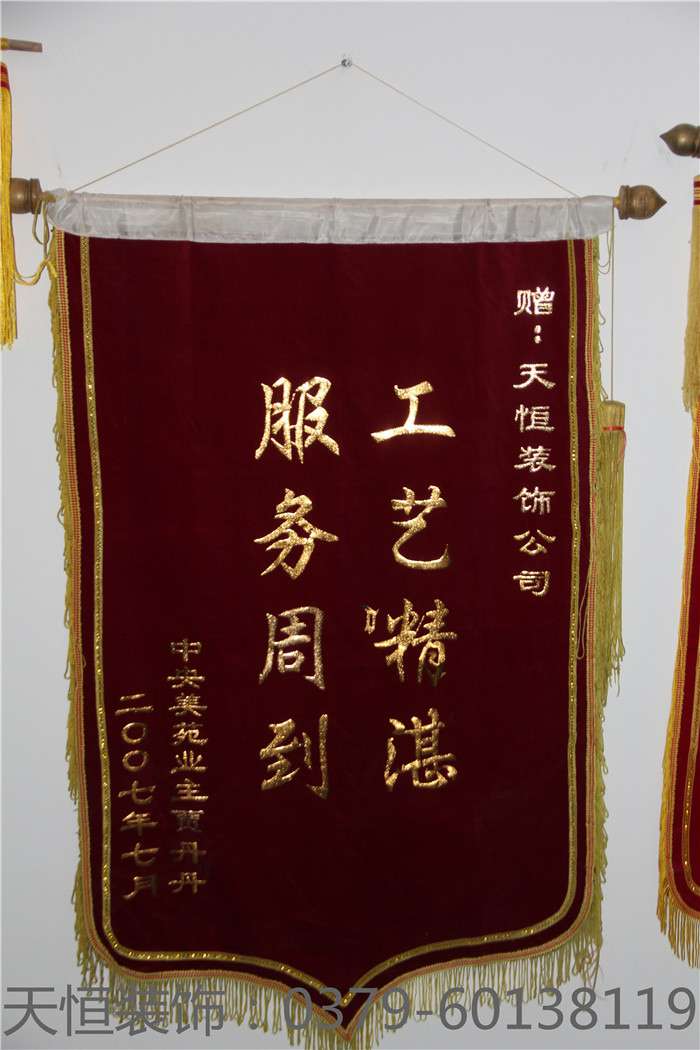 赠：天恒装饰公司
工艺精湛
服务周到
中安美苑业主贾丹丹
二〇〇七年七月
天恒装饰：0379-60138119